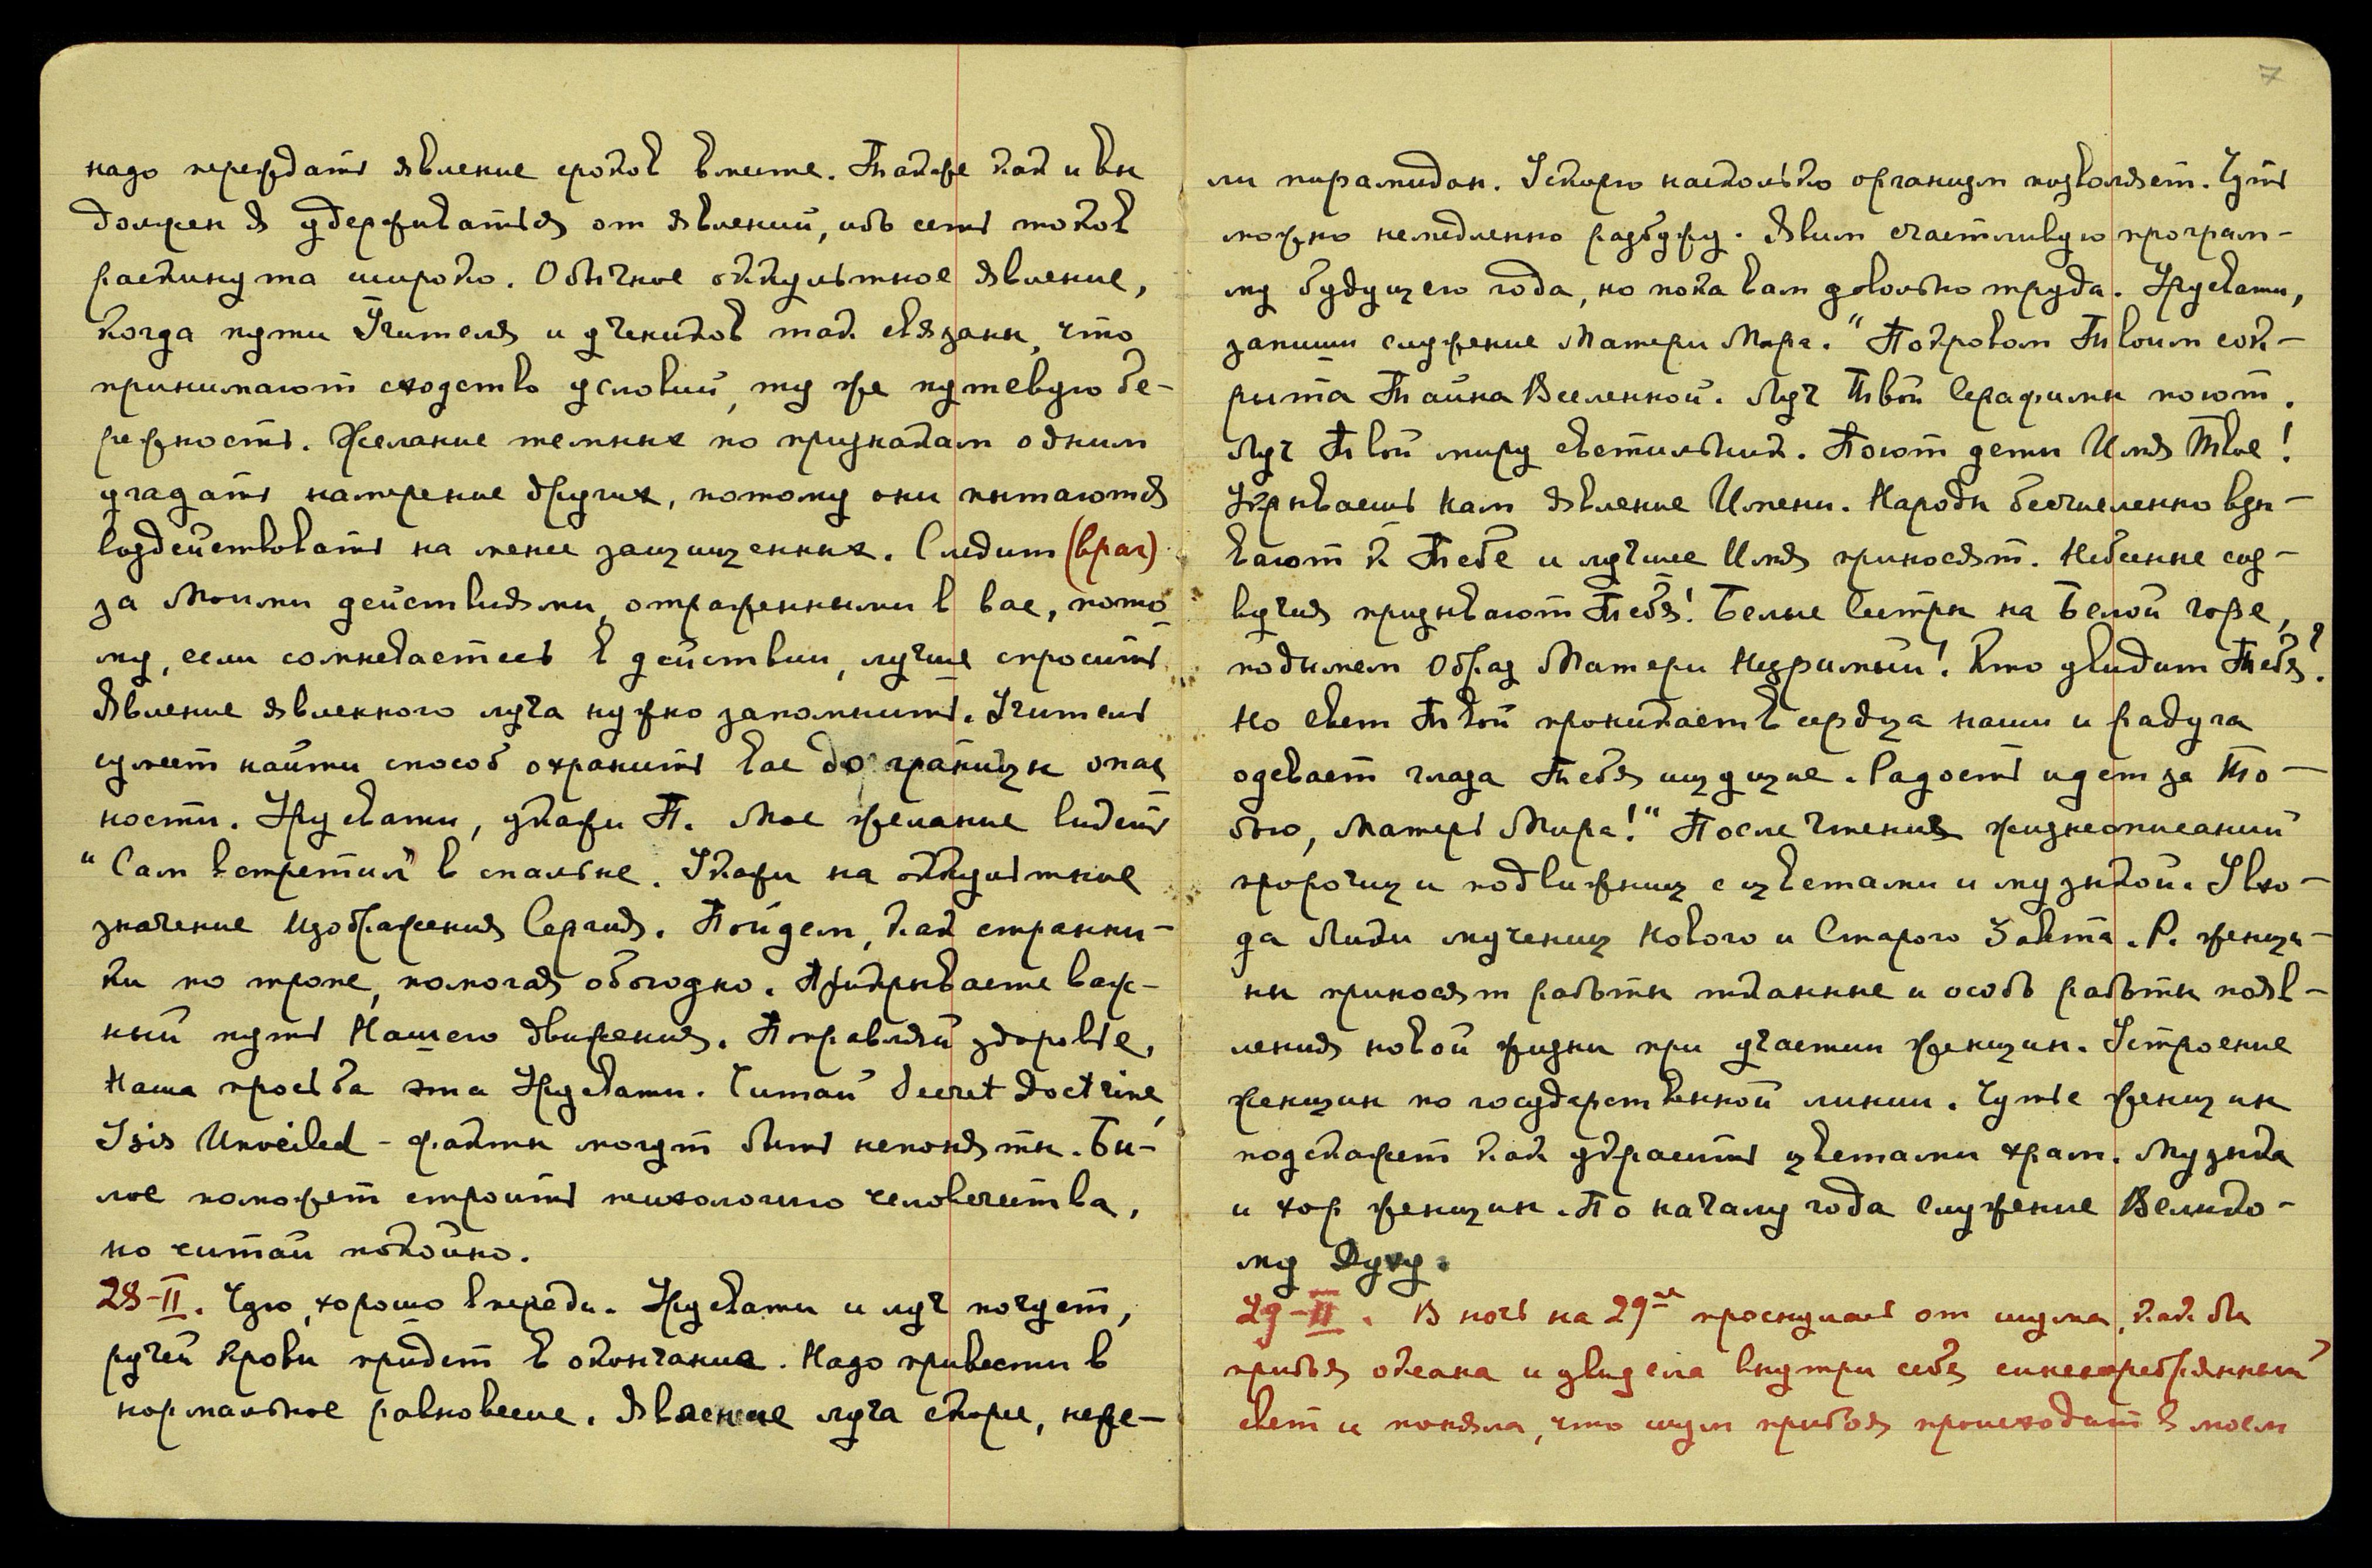 7
надо переждать явление сроков вместе. Также как и вы
должен я удерживаться от явлений, ибо сеть токов
раскинута широко. Обычное оккультное явление,
когда пути Учителя и учеников так связаны, что
принимают сходство условий, ту же путевую бе-
режность. Желание темных по признакам одним
угадать намерение других, потому они пытаются
воздействовать на менее защищенных. Следит (враг)
за Моими действиями, отраженными в вас, пото-
му, если сомневаетесь в действии, лучше спросить.
Явление явленного луча нужно запомнить. Учитель
сумеет найти способ охранить вас до границы опас-
ности. Урусвати, укажи П. Мое желание видеть
"Сам встретил" в спальне. Укажи на оккультное
значение изображения Сергия. Пойдем, как странни-
ки по тропе, помогая обоюдно. Прикрываете важ-
ный путь Нашего движения. Поправляй здоровье,
Наша просьба эта Урусвати. Читай Secret Doctrine,
Isis Unveiled - факты могут быть непонятны. Бы-
лое поможет строить психологию человечества,
но читай покойно.
28-II. Чую, хорошо впереди. Урусвати и луч почует,
ручей крови придет в окончание. Надо привести в
нормальное равновесие. Явление луча скоро, неже-
ли пирамидон. Ускорю насколько организм позволяет. Чуть
можно немедленно разбужу. Явим счастливую програм-
му будущего года, но пока вам довольно труда. Урусвати,
запиши служение Матери Мира. "Покровом Твоим сок-
рыта Тайна Вселенной. Луч Твой Серафимы поют.
Луч Твой миру светильник. Поют дети Имя Твое!
Укрываешь Нам явление Имени. Народы бесчисленно взы-
вают к Тебе и лучшее Имя приносят. Небесные соз-
вучия призывают Тебя! Белые Сестры на Белой горе,
подымем Образ Матери Незримый! Кто увидит Тебя?
Но свет Твой проникает в сердца наши и радуга
одевает глаза Тебя ищущие. Радость идет за То-
бою, Матерь Мира!" После чтения жизнеописаний
пророчиц и подвижниц с цветами и музыкой. Ухо-
да Лики мучениц Нового и Старого Завета. Р. женщи-
ны приносят работы тканные и особо работы появ-
ления новой жизни при участии женщин. Устроение
женщин по государственной линии. Чутье женщин
подскажет как украсить цветами храм. Музыка
и хор женщин. По началу года служение Велико-
му Духу.
29-II. В ночь на 29ое проснулась от шума, как бы
прибоя океана и увидела внутри себя синесеребрянный
свет и поняла, что шум прибоя происходит в моем